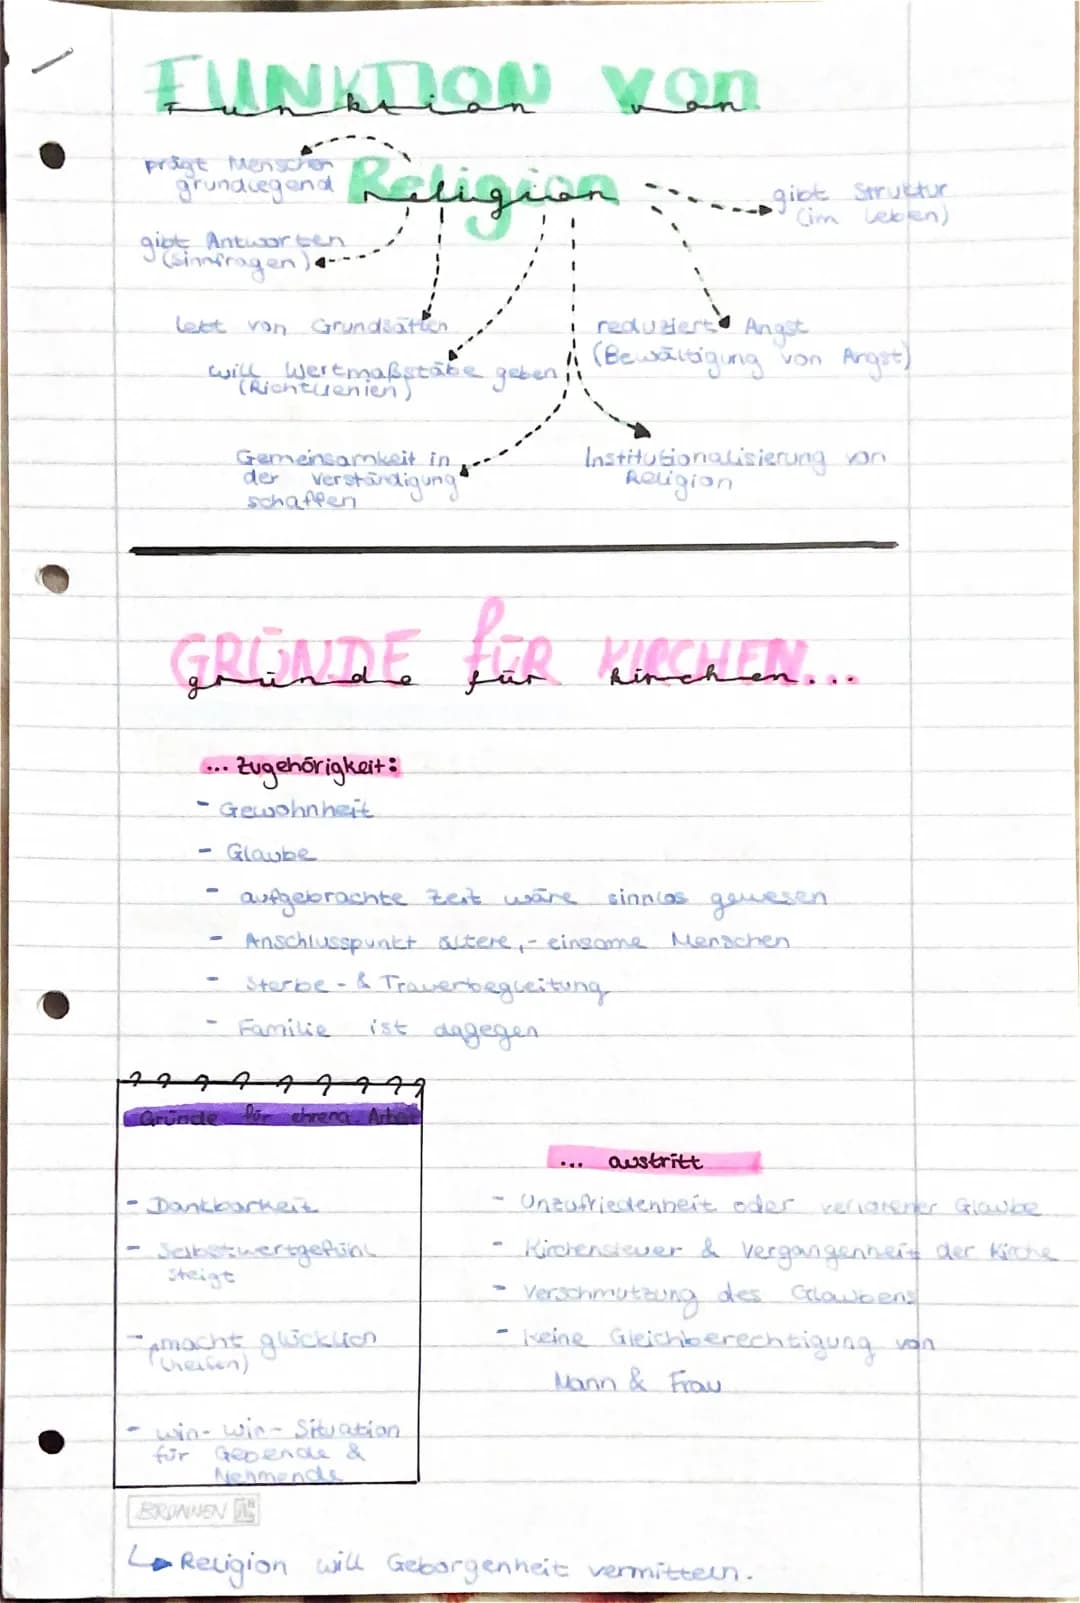 FUNKTION von
Funktion von
Religion
Religion
prägt Menschen
grundlegend
gibt Struktur
(im Leben)
gibt Antworten
(Sinnfragen)
lebt von Grundsätzen
reduziert Angst
(Bewältigung von Angst)
will Wertmaßstäbe geben
(Richtlienien)
Gemeinsamkeit in
der verständigung
schaffen
Institutionalisierung von
Religion
GRÜNDE für KIRCHEN...
gründe für kirchen...
... Zugehörigkeit:
- Gewohnheit
- Glaube
- aufgebrachte Zeit wäre sinnlos gewesen
- Anschlusspunkt ältere,- einsame Menschen
- Sterbe - & Trauerbegleitung
- Familie ist dagegen
Gründe für ehrena. Arbeit
- Dankbarkeit
- Selbstwertgefühl
steigt
- macht glücklich
(helfen)
- win- win- Situation
für Gebende &
Nehmende
... austritt
- Unzufriedenheit oder verlorener Glaube
- Kirchensteuer & Vergangenheit der Kirche
- Verschmutzung des Glaubens
- Keine Gleichberechtigung von
Mann & Frau
BRUNNEN
↳ Religion will Geborgenheit vermitteln.